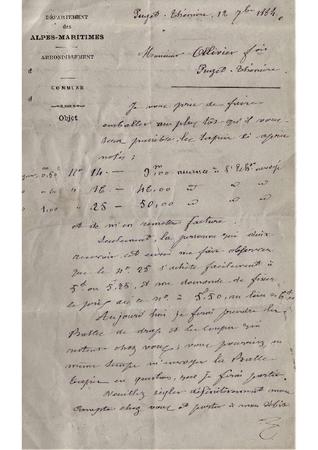 DÉPARTEMENT
des
ALPES-MARITIMES
ARRONDISSEMENT
COMMUNE
Objet
Puget-Théniers, 12 9bre 1884
Monsieur Ollivier fois
Puget-Théniers
Je vous prie de faire
emballer au plus tôt qu'il vous
sera possible les tapis ci après
notés:
N° 14 — 9m,00
" 16 — 46,00
" 25 — 50,00
et de m'en remettre facture.
Seulement la personne qui doit
recevoir cet envoi me fait observer
que le N° 25 s'achète facilement à
5f ou 5.25, il me demande de fixer
le prix de ce n° à 5f.50, au lieu de
Aujourd'hui je ferai prendre la
Balle de drap et les coupes qui
restent chez vous; vous pourriez en
même temps m'envoyer la Balle
tapis en question, que je ferai partir.
Veuillez régler définitivement mon
compte chez vous et porter à mon débit